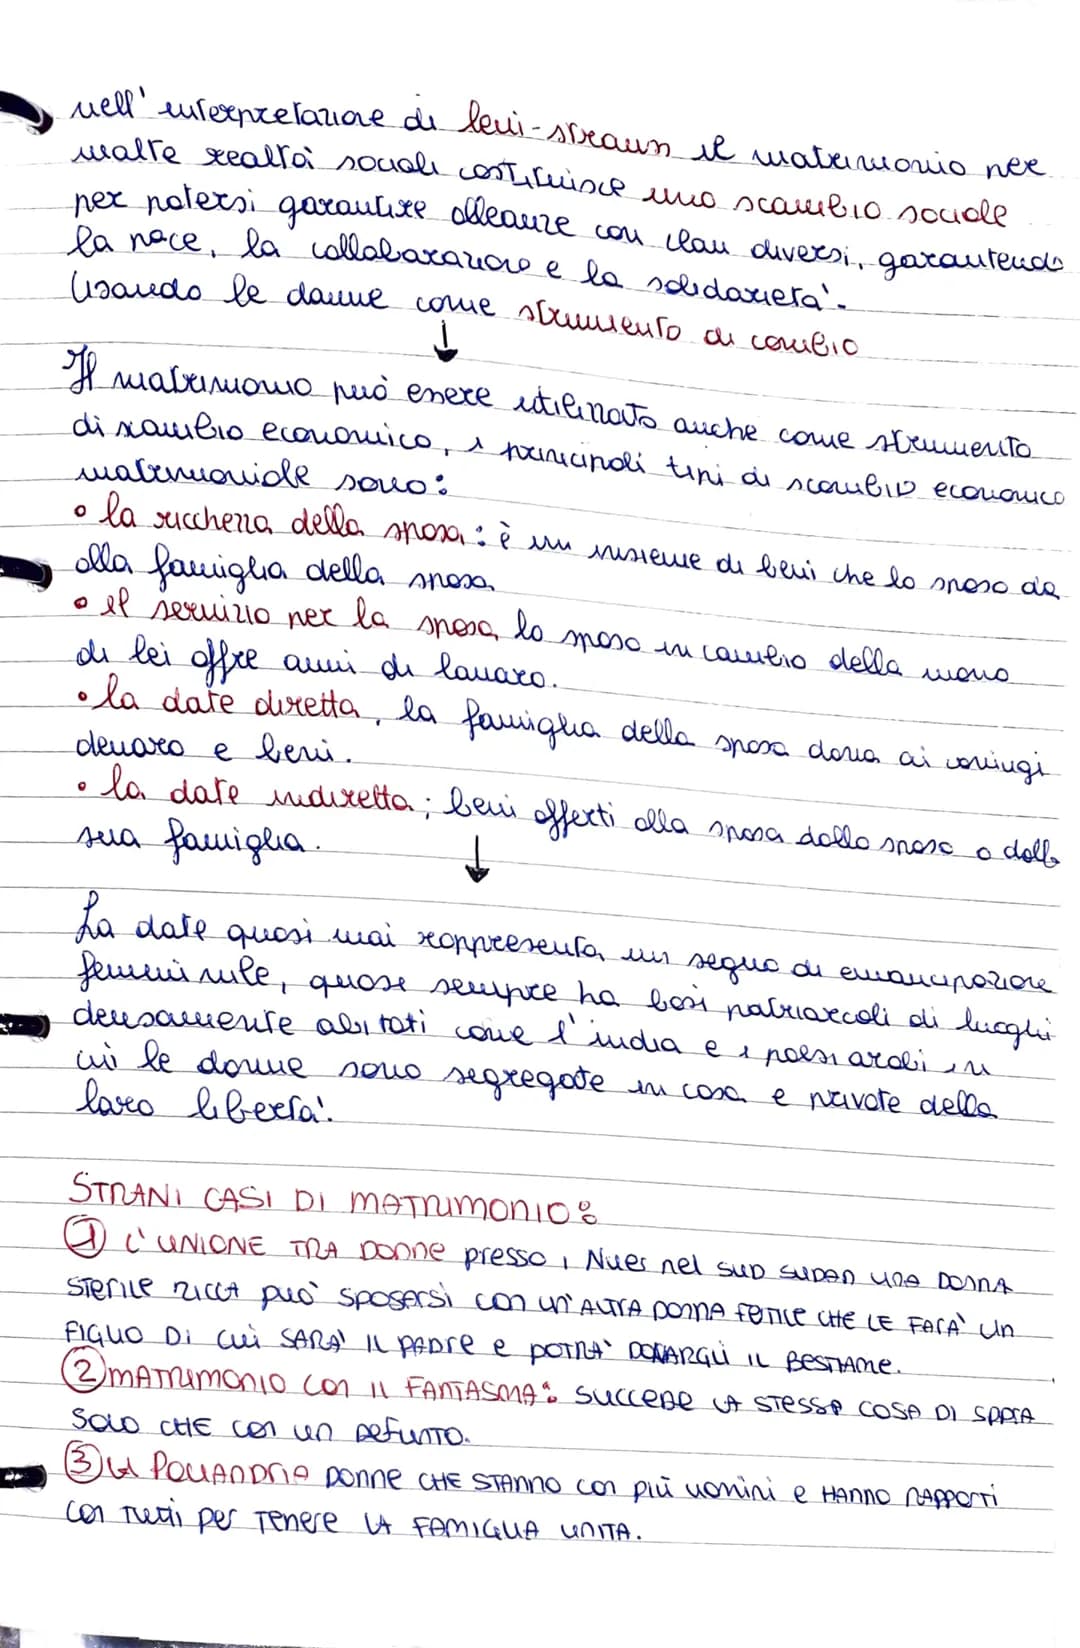 nell'interpretazione di levi-strauss il matrimonio per
molte realtà sociali costituisce uno scambio sociale
per potersi garantire alleanze con clan diversi, garantendo
la pace, la collaborazione e la solidarietà.
Usando le donne come strumento di cambio
↓
Il matrimonio può essere utilizzato anche come strumento
di scambio economico, i principali tipi di scambio economico
matrimoniale sono:
• la ricchezza della sposa: è un insieme di beni che lo sposo dà
alla famiglia della sposa
• il servizio per la sposa, lo sposo in cambio della mano
di lei offre anni di lavoro.
• la dote diretta, la famiglia della sposa dona ai coniugi
denaro e beni.
• la dote indiretta; beni offerti alla sposa dallo sposo o dalla
sua famiglia.
↓
La dote quasi mai rappresenta un segno di emancipazione
femminile, quase sempre ha basi patriarcali di luoghi
densamente abitati come l'india e i paesi arabi in
cui le donne sono segregate in casa e private della
loro libertà.
STRANI CASI DI MATRIMONIO:
① L'UNIONE TRA DONNE presso i Nuer nel SUD SUDAN UNA DONNA
STERILE RICCA può SPOSARSI con un'ALTRA DONNA FERTILE CHE LE FARÀ UN
FIGLIO DI cui SARÀ IL PADRE e POTRÀ DONARGLI IL BESTIAME.
② MATRIMONIO CON IL FANTASMA: SUCCEDE LA STESSA COSA DI SOPRA
SOLO CHE CON UN DEFUNTO.
③ LA POLIANDRIA DONNE CHE STANNO CON più uomini e HANNO RAPPORTI
CON TUTTI per TENERE LA FAMIGLIA UNITA.